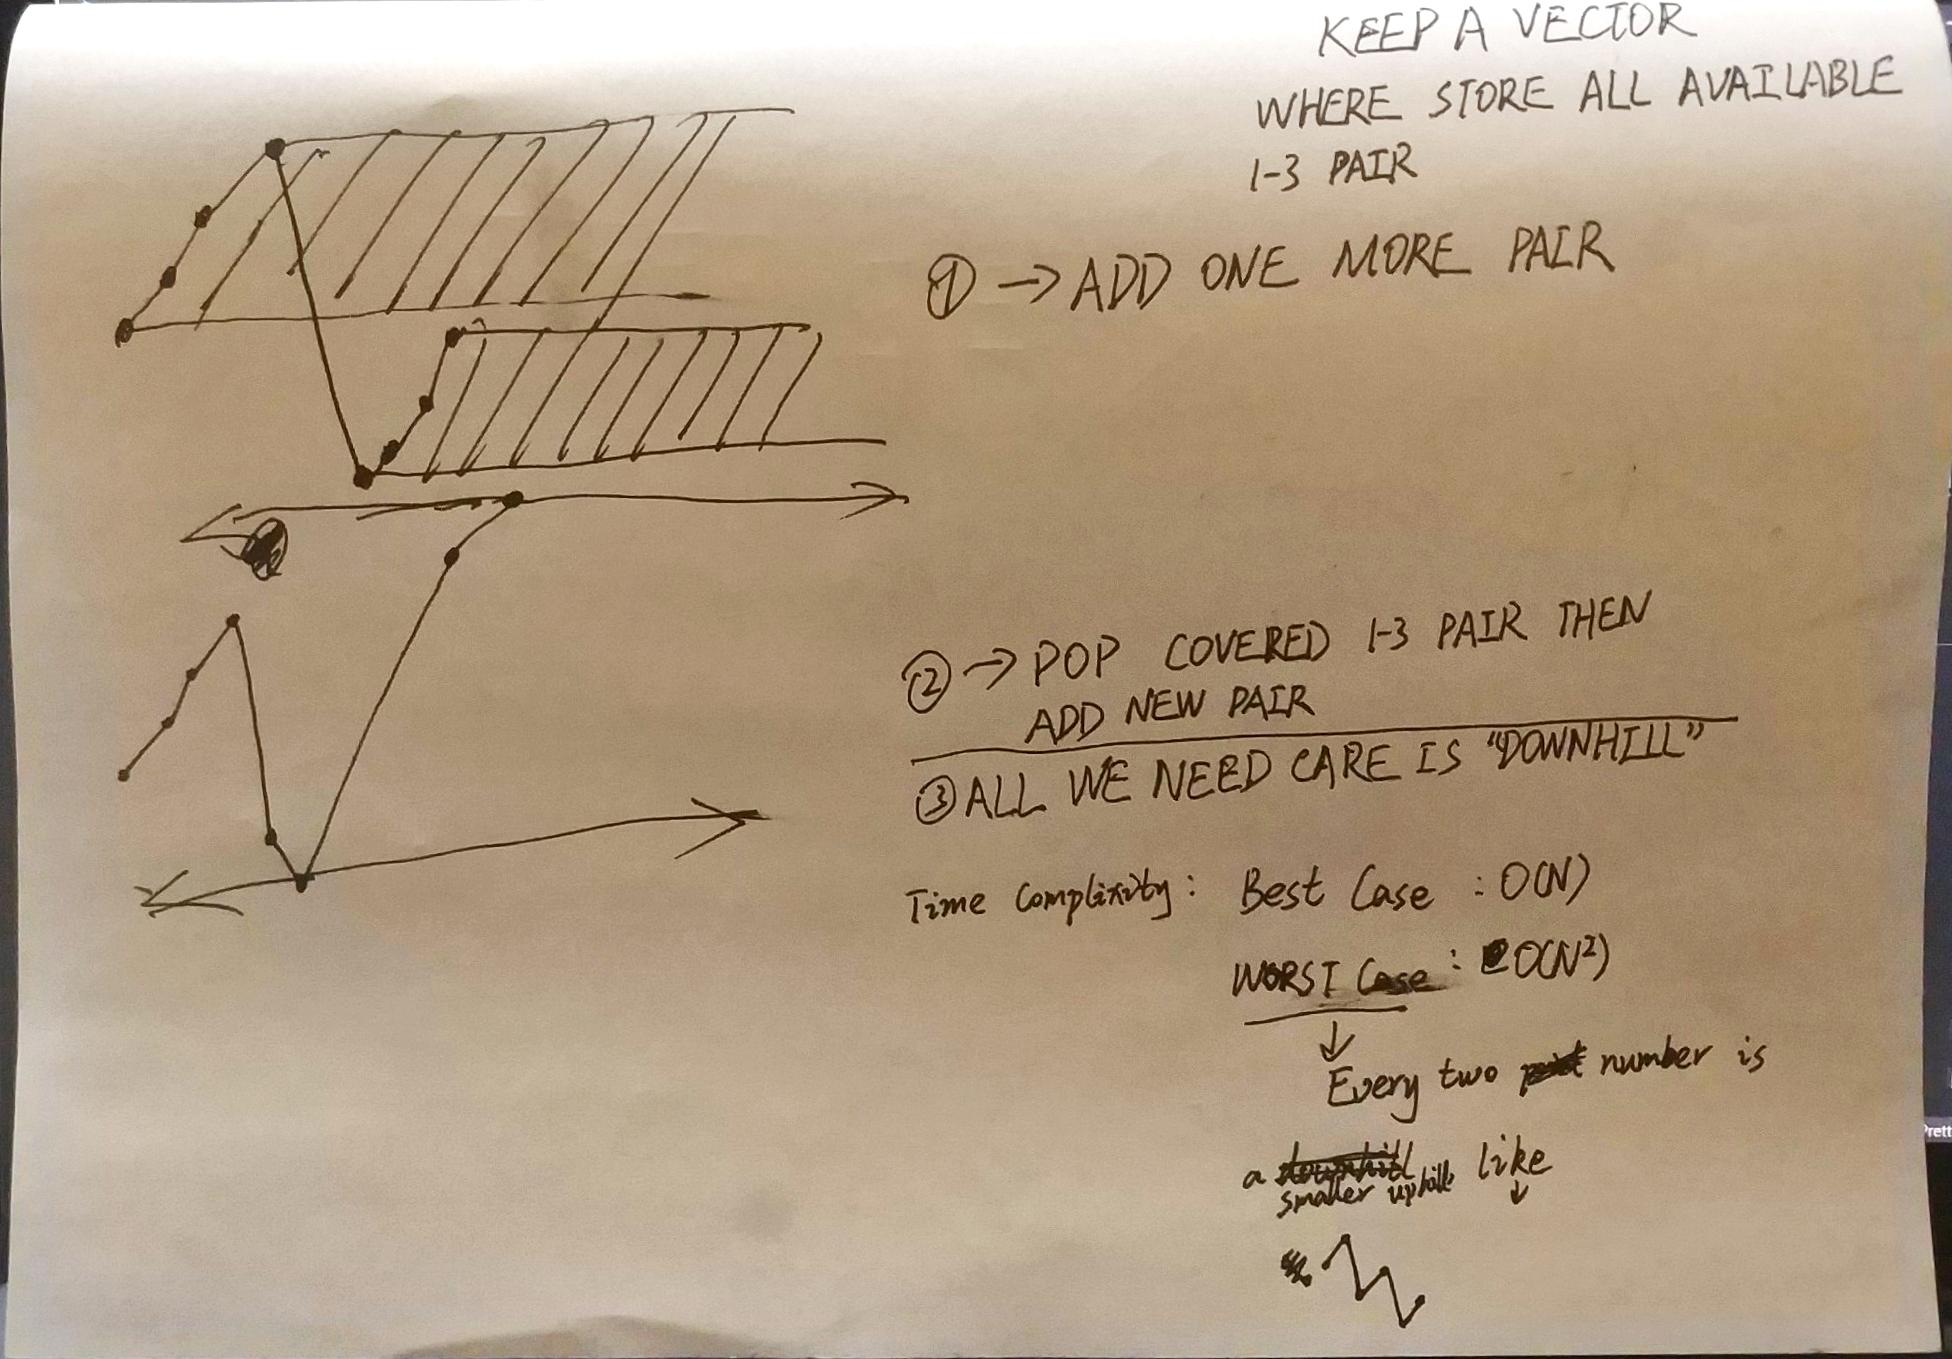 KEEP A VECTOR
WHERE STORE ALL AVAILABLE
1-3 PAIR
① → ADD ONE MORE PAIR
② → POP COVERED 1-3 PAIR THEN
ADD NEW PAIR
③ ALL WE NEED CARE IS "DOWNHILL"
Time Complixity: Best Case : O(N)
WORST Case : O(N²)
↓
Every two number is
a smaller uphill like
↓
Prett